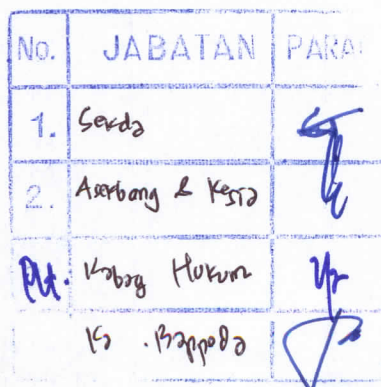 No. JABATAN PARA
1. Sekda
2. Asekbang & Kesra
Plt. Kabag Hukum
Ka. Bappeda